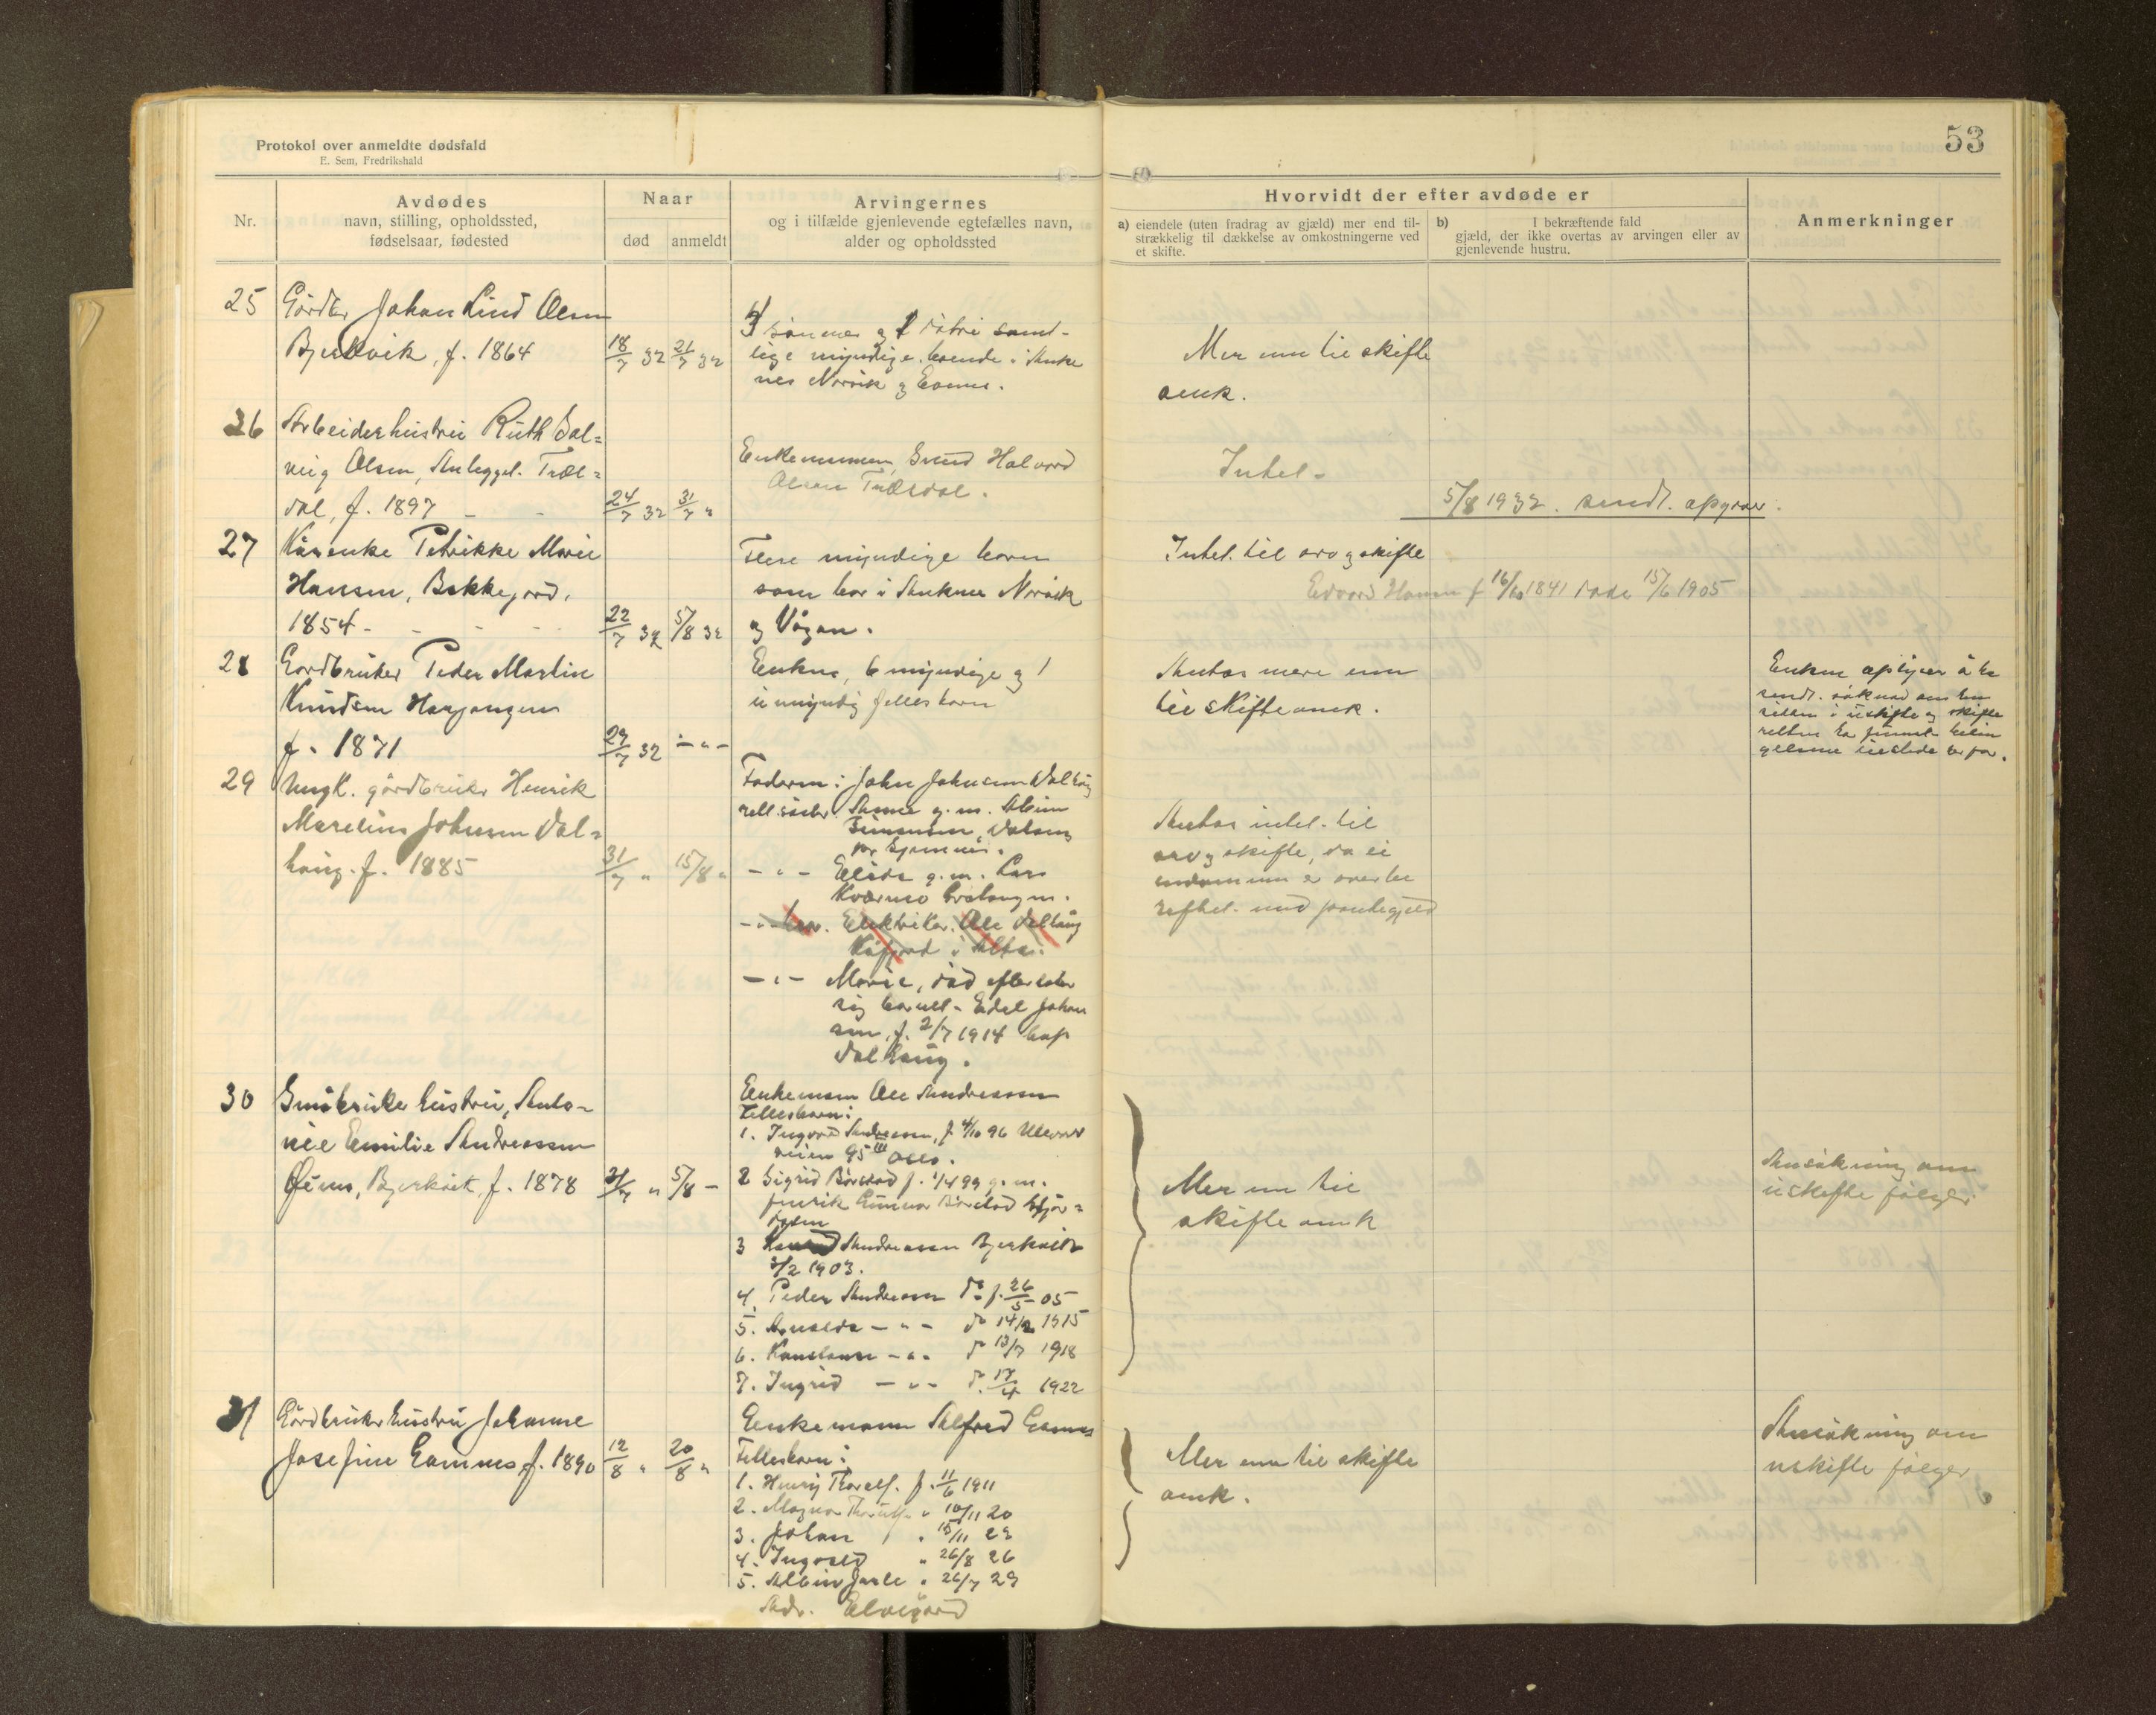 Protokol over anmeldte dødsfald
E. Sem, Fredrikshald
53
Nr.
Avdødes
navn, stilling, opholdssted,
fødselsaar, fødested
Naar
død
anmeldt
Arvingernes
og i tilfælde gjenlevende egtefælles navn,
alder og opholdssted
Hvorvidt der efter avdøde er
a) eiendele (uten fradrag av gjæld) mer end til-
strækkelig til dækkelse av omkostningerne ved
et skifte.
b) I bekræftende fald
gjæld, der ikke overtas av arvingen eller av
gjenlevende hustru.
Anmerkninger
25
Johan Lind Olsen
Bjerkvik, f. 1864
18/7 32
21/7 32
sønner og døtre samt-
lige myndige, boende i Anke
nes Narvik og
Mer enn til skifte
omk.
26
Arbeiderhustru Ruth Sol-
veig Olsen, Anlegget. Træl-
dal, f. 1897
24/7 32
31/7 "
Enkemannen, Halvard
Olsen Trældal.
Intet.
5/8 1932. sendt
27
Kårenke Petrikke Marie
Hansen, Bakkejord,
1854 -
22/7 32
5/8 32
Flere myndige barn
som bor i Ankenes Narvik
og Vågan.
Intet til arv og skifte
Edvard Hansen f 16/10 1841 døde 15/6 1905
28
Gårdbruker Peder Martin
Knudsen Herjangen
f. 1871
29/7 32
- " -
Enken, 6 myndige og 1
umyndig fellesbarn
Antas mere enn
til skifteomk.
Enken oplyser å ha
sendt søknad om
i uskifte og skifte
retten har
29
Ungk. gårdbruker Henrik
Marelius Johnsen Dal-
haug. f. 1885
31/7 "
15/8 "
Faderen: John Johnsen Dalhaug
hell. søster Anna g.m. Albin
Simonsen,
- " - Elida g.m. Lars
Kværnmo
- " - bror. Elektriker Ole Dalhaug
Kåfjord i Alta.
- " - Marie, død efterlater
sig barnet - Edel Johan
sen, f. 2/7 1914
Dalhaug.
Antas intet til
arv og skifte, da ei
endommen er over be
heftet med pantegjeld
30
Småbruker hustru, Anto-
nie Emilie Andreassen
Øiens, Bjerkvik, f. 1878
31/7 "
5/8 -
Enkemann Ole Andreassen
Fellesbarn:
1. Ingvard Andreassen, f. 4/10 96 Ullevåls
veien 95 III Oslo.
2 Sigrid Børstad f. 1/4 99 g.m.
Fredrik Gunnar Børstad
3 Andreassen Bjerkvik
3/2 1903.
4. Peder Andreassen do f. 26/5 05
5. - " - do 14/12 1915
6. Konstanse - " - do 13/7 1918
7. Ingrid - " - d. 17/4 1922
Mer enn til
skifte omk
Ansøkning om
uskifte følger
31
Gårdbruker hustru Johanne
Josefine f. 1890
12/8 "
20/8 "
Enkemann Alfred
Fellesbarn:
1. Henry Thoralf. f. 11/6 1911
2. Magnar " 10/11 20
3. Johan " 15/11 23
4. Ingvald " 26/8 26
5. Albin Jarle " 26/7 29
Adr. Elvegård
Mer enn til skifte
omk.
Ansøkning om
uskifte følger